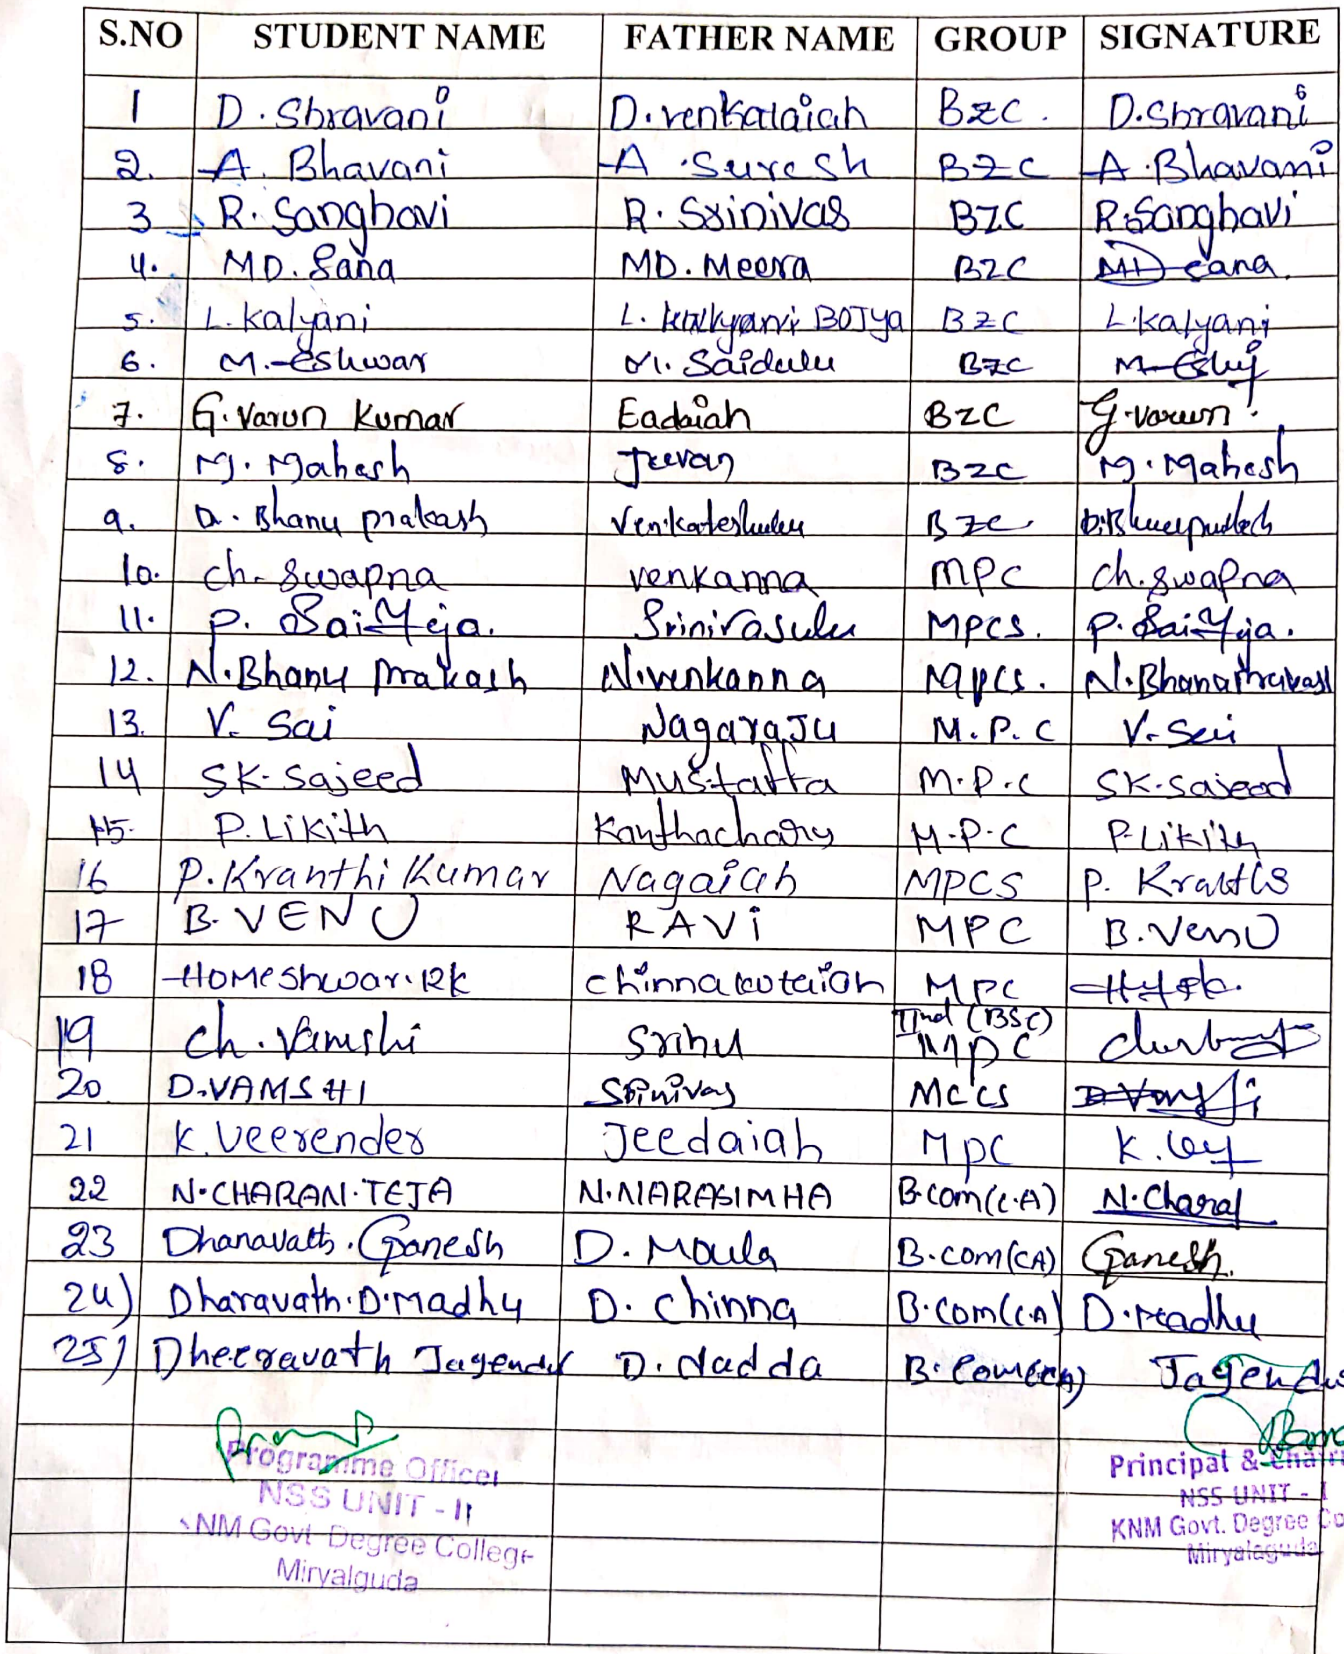 S.NO STUDENT NAME FATHER NAME GROUP SIGNATURE
1 D. Shravani D. venkataiah BZC. D. Shravani
2. A. Bhavani A. Suresh BZC A. Bhavani
3 R. Sanghavi R. Srinivas BZC R. Sanghavi
4. MD. Sana MD. Meera BZC MD Sana.
5. L. kalyani L. BOJya BZC L. kalyani
6. M. Eshwar M. Saidulu BZC
7. G. Varun Kumar Eadaiah BZC G. varun
8. M. Mahesh Jeevan BZC M. Mahesh
9. D. Bhanu prakash Venkateshulu BZC
10. ch. Swapna venkanna MPC ch. swapna
11. P. Sai Teja. Srinivasulu MPCS. P. Sai Teja.
12. N. Bhanu Prakash N. venkanna MPCS. N. Bhanu Prakash
13. V. Sai Nagaraju M.P.C V. Sai
14 SK. Sajeed Mustaffa M.P.C SK. Sajeed
15. P. Likith Kanthachary M.P.C P. Likith
16 P. Kranthi Kumar Nagaiah MPCS P.
17 B. VENU RAVi MPC B. VenU
18 Homeshwar. RK chinnakotaiah MPC
19 Ch. Vamshi Srinu IInd (BSC) MPC
20 D. VAMSHI Srinivas MCCS
21 K. Veerender Jeedaiah MPC K.
22 N. CHARAN. TEJA N. NARASIMHA B.com(C.A) N. Charan
23 Dhanavath. Ganesh D. Moula B.com(CA) Ganesh.
24) Dharavath. D. Madhu D. Chinna B.com(C.A) D. Madhu
25) Dheeravath Jagender D. dadda B.com(CA)
Programme Officer
NSS UNIT - II
NM Govt Degree College
Miryalguda
Principal &
NSS UNIT - I
KNM Govt. Degree Co
Miryalaguda